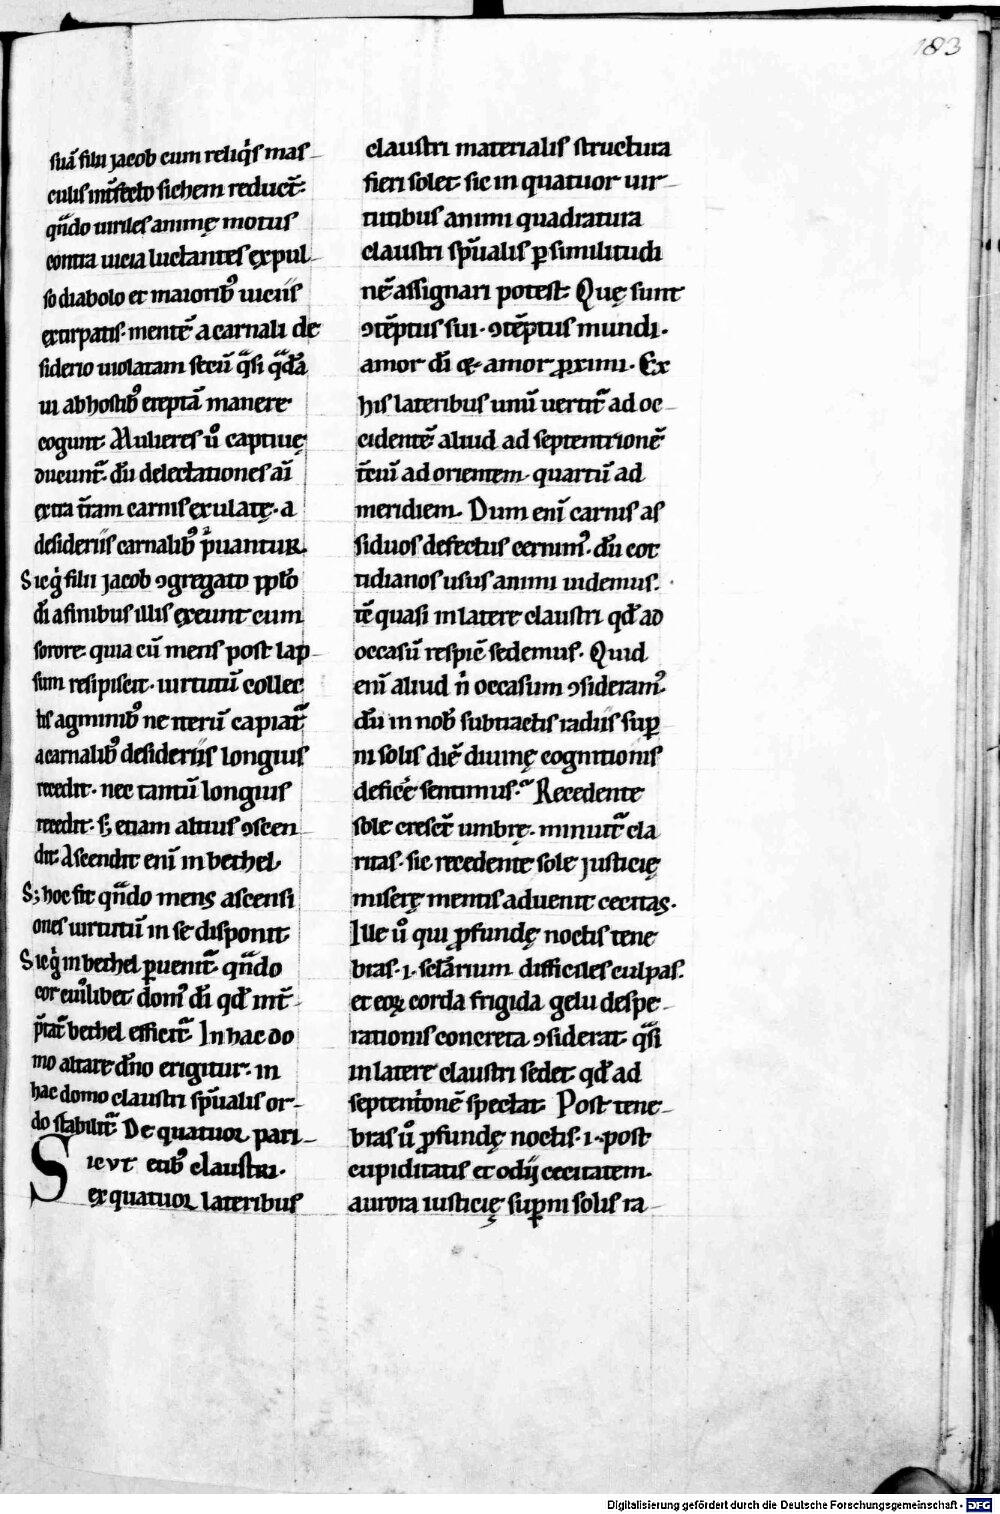 183
suā filii jacob cum reliq̇s mas-
culis int̄fecto sichem reduct̄:
qn̄do uiriles animę motus
contra uicia luctantes expul-
so diabolo et maiorib⁹ uiciis
exturpatis. mentē a carnali de
siderio uiolatam secū qͣsi qͣdā
ui ab hostib⁹ ereptā manere
cogunt. Mulieres ů captiuę
ducunt̄. dū delectationes aī
extra t̄ram carnis exulatę. a
desideriis carnalib⁹ pͥuantur.
Sic g̊ filii jacob ɔgregato pp̄lo
dī a finibus illis exeunt cum
sorore. quia cū mens post lap-
sum resipiscit. uirtutū collec
tis agminib⁹ ne iterū capiat̄
a carnalib⁹ desideriis longius
recedit. nec tantū longius
recedit. s; etiam altius ɔscen-
dit. Ascendit enī in bethel.
S; hoc fit qn̄do mens ascensi
ones uirtutū in se disponit.
Sic g̊ in bethel ꝑuenit̄. qn̄do
cor cui⁹libet dom⁹ dī qd̄ int̄-
p̄tat̄ bethel efficit̄. In hac do
mo altare dn̄o erigitur. in
hac domo claustri sp̄ualis or-
do stabilit̄. De quatuor pari-
Sicut enī claustri.
ex quatuor lateribus
claustri materialis structura
fieri solet. sic in quatuor uir-
tutibus animi quadratura
claustri sp̄ualis ꝑ similitudi
nē assignari potest. Quę sunt
ɔtēptus sui. ɔtēptus mundi.
amor dī & amor ꝓximi. Ex
his lateribus unū uertit̄ ad oc-
cidentē aliud ad septentrionē
t̄ciū ad orientem. quartū ad
meridiem. Dum enī carnis as
siduos defectus cernim⁹. dū cot
tidianos usus animi uidemus.
tē quasi in latere claustri qd̄ ad
occasū respic̄ sedemus. Quid
enī aliud n̄ occasum ɔsideram⁹.
dū in nob̄ subtractis radiis suꝑ
ni solis diē diuinę cognitionis
defic̄e sentimus. Recedente
sole cresct̄ umbrę. minuit̄ cla
ritas. sic recedente sole justicię
miserę mentis aduenit cecitas.
Ille ů qui ꝓfundę noctis tene
bras .i. sclārium difficiles culpas.
et eoꝝ corda frigida gelu despe-
rationis concreta ɔsiderat. qͣsi
in latere claustri sedet. qd̄ ad
septent͛onē spectat. Post tene-
bras ů ꝓfundę noctis .i. post
cupiditatis et odij cecitatem.
aurora iusticię suꝑni solis ra-
Digitalisierung gefördert durch die Deutsche Forschungsgemeinschaft - DFG